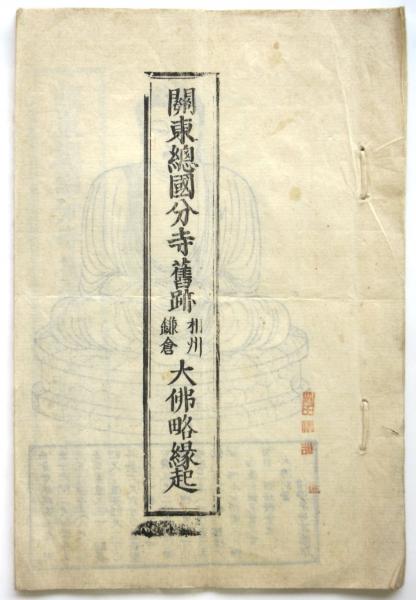 關東總國分寺舊跡
相州
鎌倉
大佛略緣起